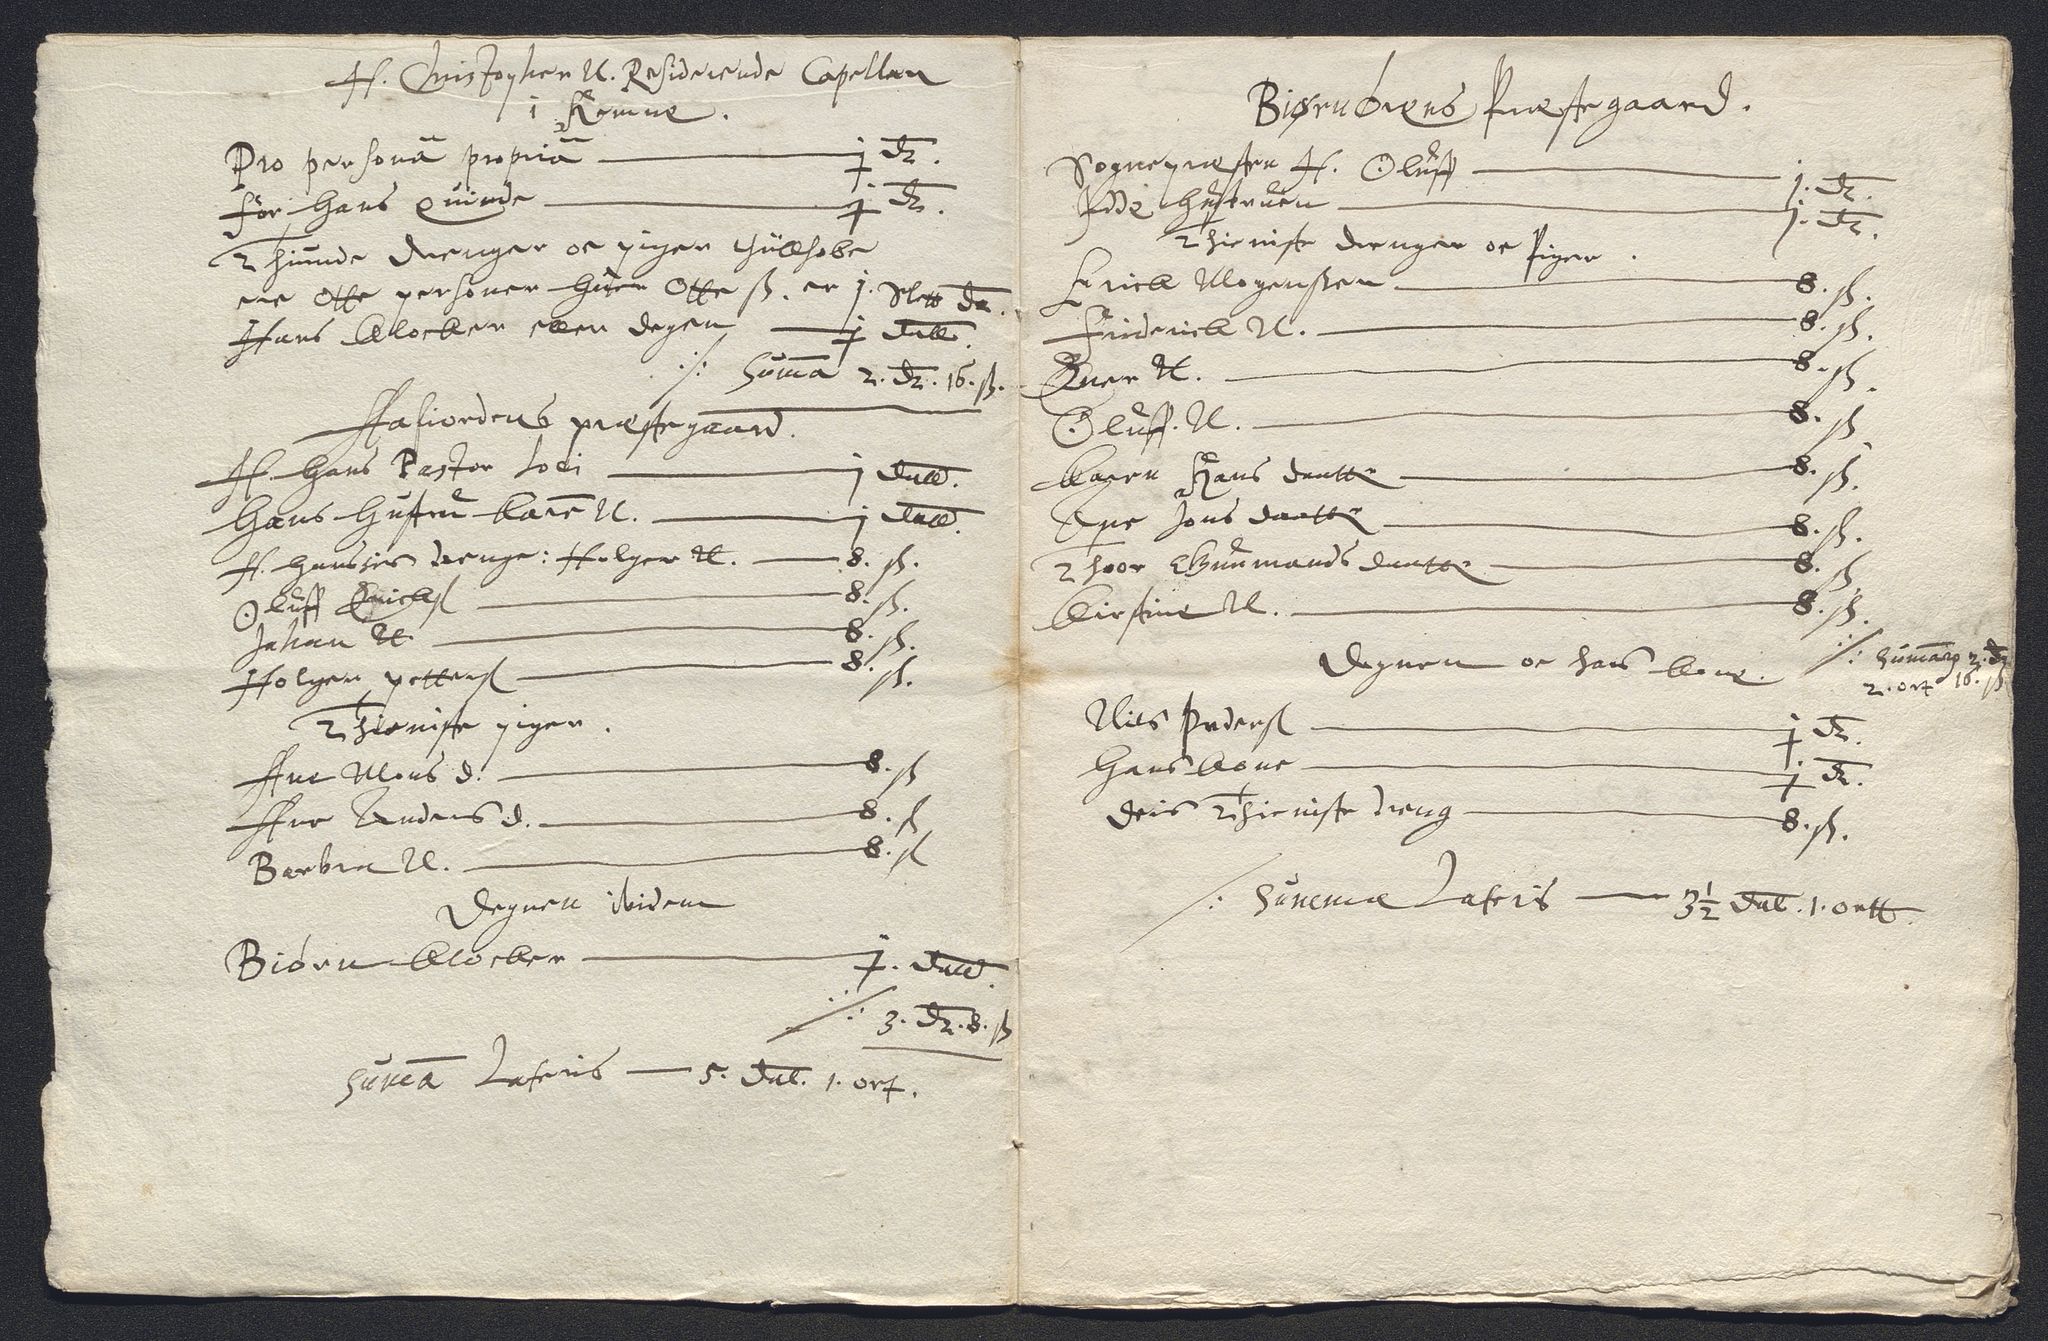 H. Christopher N. Residerende Capellan
i Remne.
Pro persona propria — j dr.
før hans quinde — j dr.
Thiunde drenger oc piger thillhobe
ere Otte personer huer Otte ß. er j. slett dr.
Hans klocker eller degen — j dall.
/: Suma 2. dr. 16. ß.
Hafiordens prestegaard.
H. Hans Pastor Loci — j dall.
Hans hustru Karen N. — j dall.
H. Hansis drenge: Holger N. — 8. ß.
Oluff Erichs — 8. ß.
Johan N. — 8. ß.
Holger petters — 8. ß.
Thieniste piger.
Ane Mons d. — 8. ß
Ane Anders d. — 8. ß
Barbra N. — 8. ß
Degnen ibidem
Biørn klocker — j. dall.
/: 3. dr. 8. ß
Suma Lateris — 5. dal. 1. ort.
Biørnørens Prestegaard.
Sognepresten H. Oluff — j. dr.
hustruen — j. dr.
Thieniste drenger oc Piger.
Erick Mogensen — 8. ß.
Friderick N. — 8. ß.
Iver N. — 8. ß.
Oluff. N. — 8. ß
Karen Hans daatter — 8. ß.
Ane Jons daatter — 8. ß.
Thore Gunmands daatter — 8. ß
Kirstine N. — 8. ß.
/: Summarum 2. dr
2. ort 16. ß
Degnen oc hans kone.
Nils Peders — j dr.
Hans kone — j dr.
deris Thieniste dreng — 8. ß.
/: Summa Lateris — 3½ dal. 1. ortt.